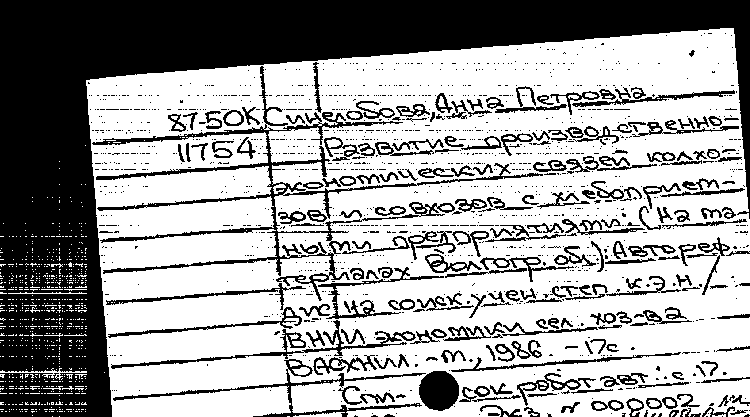 87-50К Синелобова, Анна Петровна
11754 Развитие производственно-
экономических связей колхо-
зов и совхозов с хлебоприем-
ными предприятиями: (На ма-
териалах Волгогр. обл.): Автореф.
дис на соиск. учен. степ. к.э.н /
ВНИИ экономики сел. хоз-ва
ВАСХНИЛ. - М., 1986. - 17с.
Спи- сок работ авт.: с. 17.
Экз. N 000002